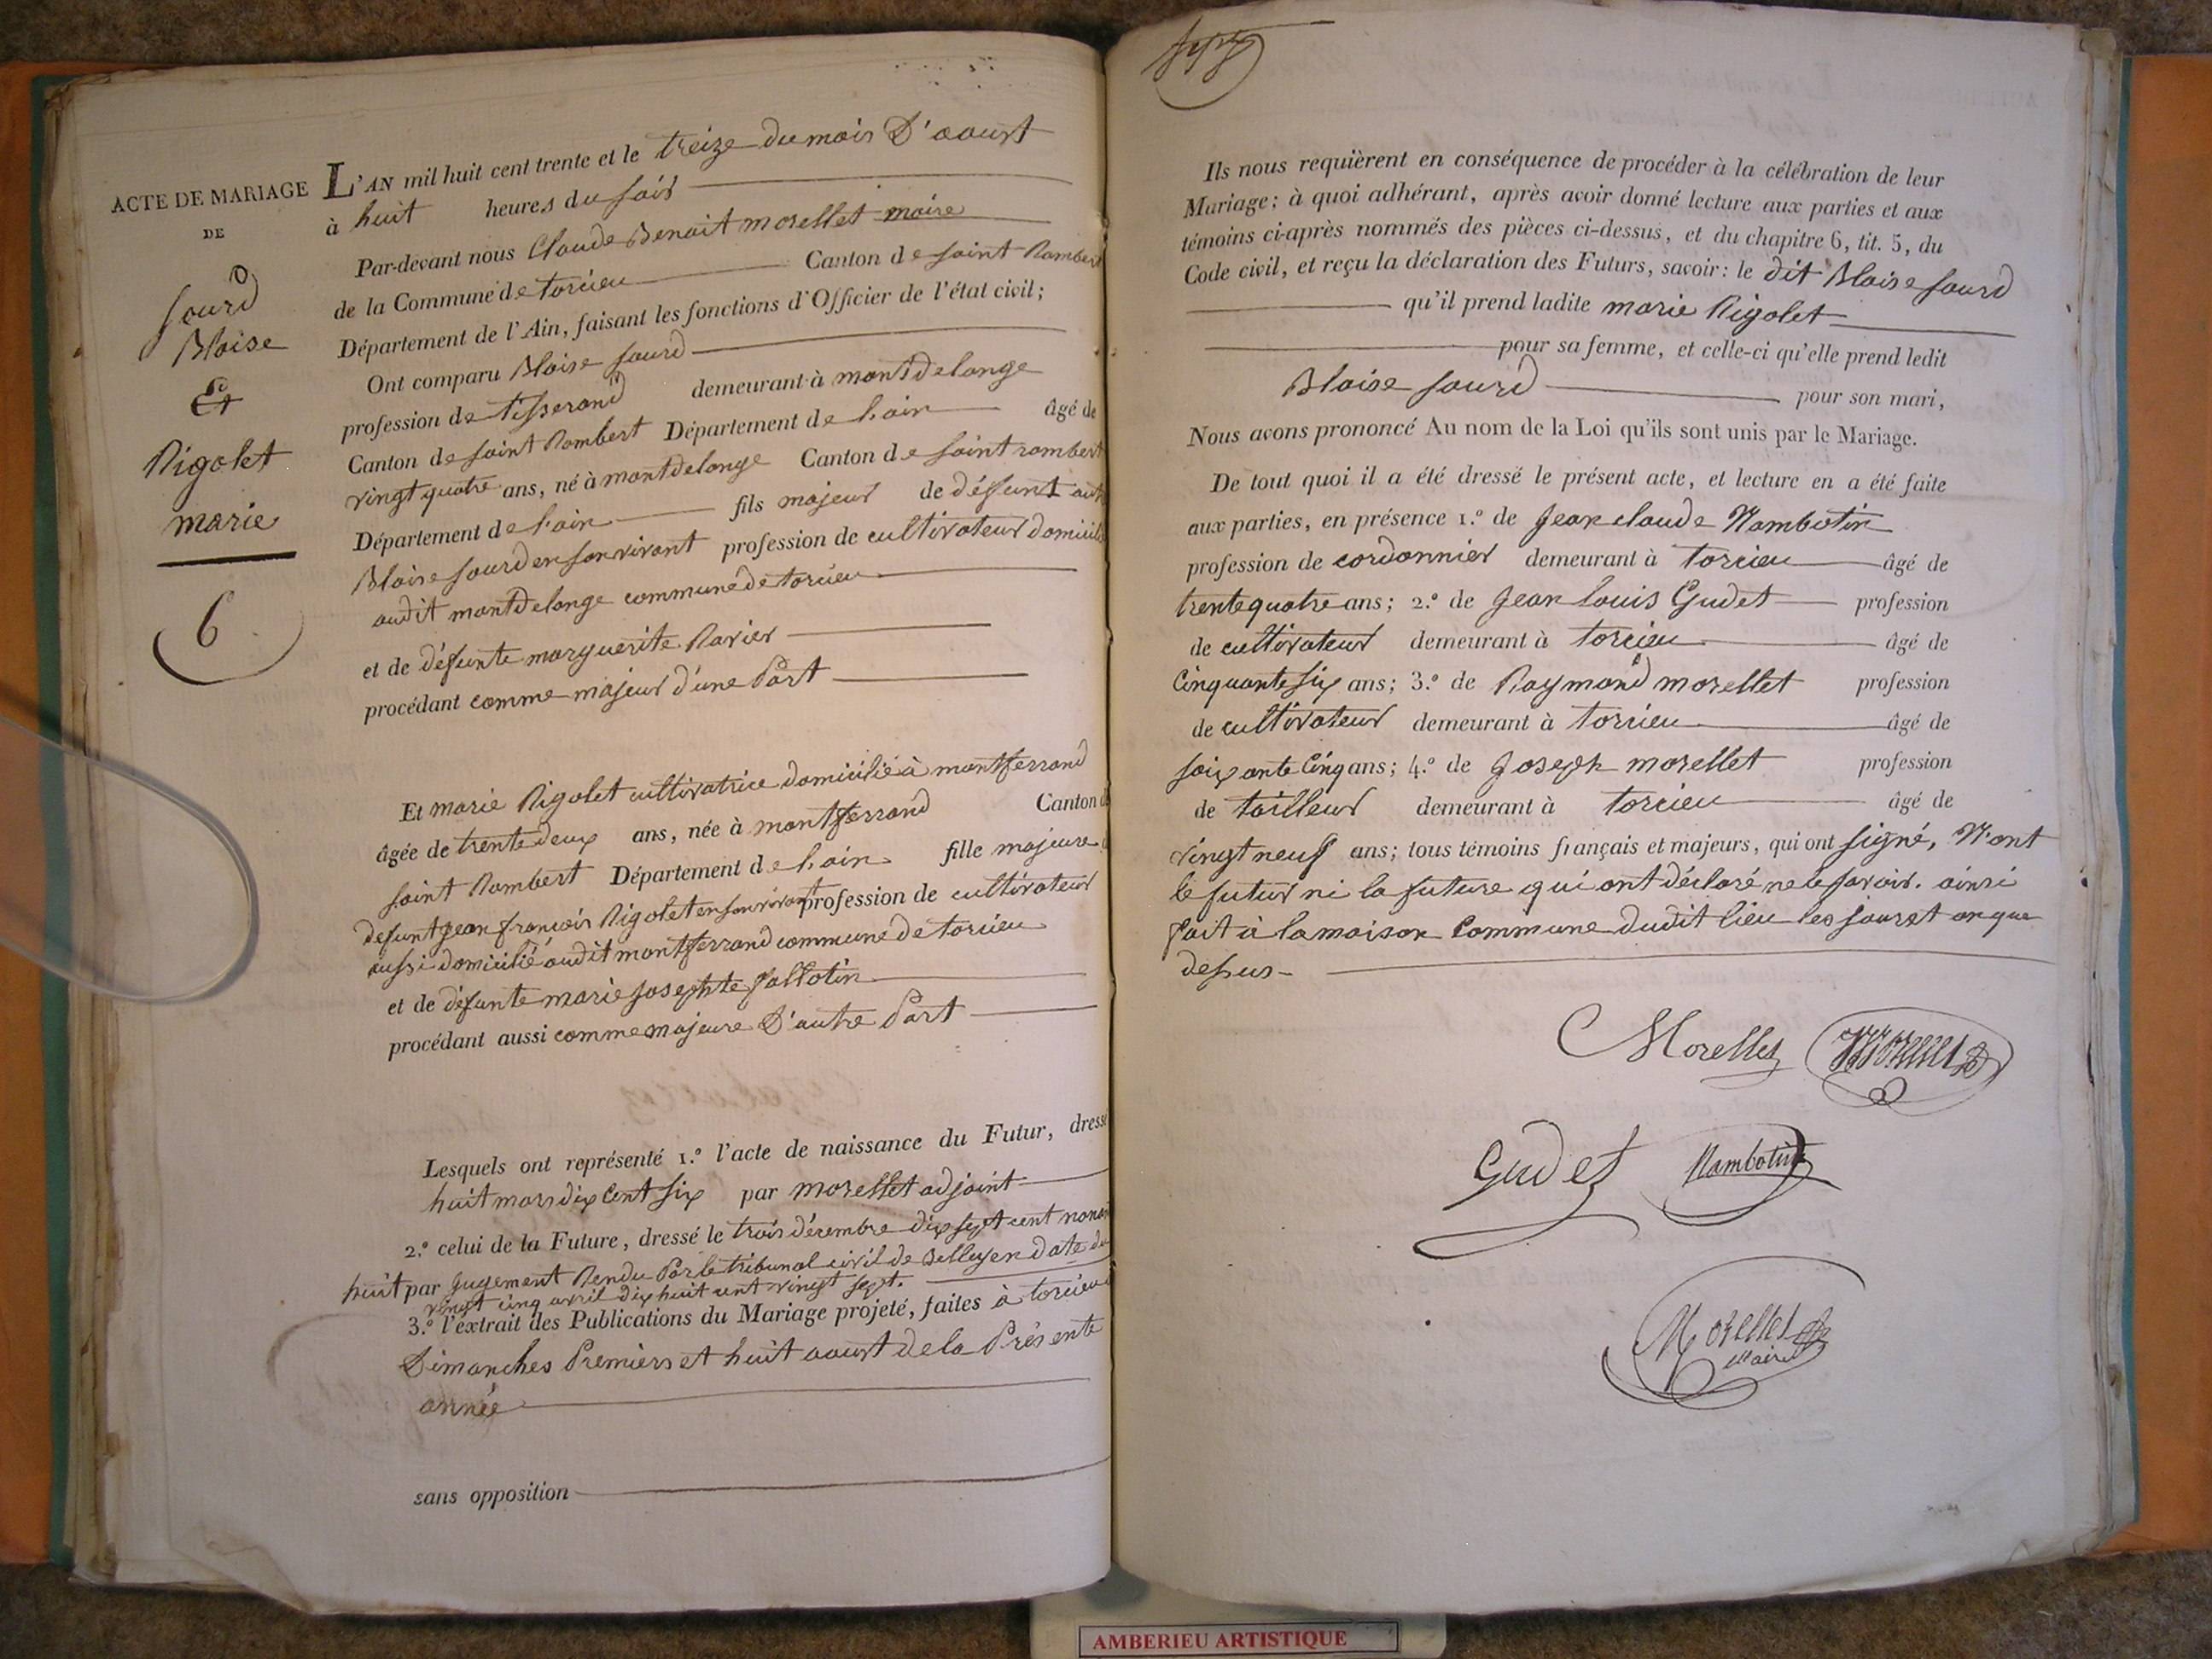 ACTE DE MARIAGE
DE
Sourd
Blaise
Et
Rigolet
marie
6
L'AN mil huit cent trente et le treize du mois D'aoust
à huit heures du soir
Par-devant nous Claude Benoit morellet maire
de la Commune de torcieu Canton de saint Rambert
Département de l'Ain, faisant les fonctions d'Officier de l'état civil;
Ont comparu Blaise Sourd
profession de tisserand demeurant à montdelonge
Canton de saint Rambert Département de l'ain âgé de
vingt quatre ans, né à montdelonge Canton de saint rambert
Département de l'ain fils majeur de défunt
Blaise Sourd en son vivant profession de cultivateur domicilié
audit montdelonge commune de torcieu
et de défunte marguerite Ravier
procédant comme majeur d'une Part
Et marie Rigolet cultivatrice domiciliée à montferrand
âgée de trente deux ans, née à montferrand Canton de
saint Rambert Département de l'ain fille majeure
defunt jean françois Rigolet en son vivant profession de cultivateur
aussi domicilié audit montferrand commune de torcieu
et de défunte marie josephte
procédant aussi comme majeure D'autre Part
Lesquels ont représenté 1.° l'acte de naissance du Futur, dressé
huit mars dix Cent six par morellet adjoint
2.° celui de la Future, dressé le trois décembre dix sept cent nonante
huit par jugement Rendu Par le tribunal civil de Belley en date du
vingt cinq avril dix huit cent vingt sept.
3.° l'extrait des Publications du Mariage projeté, faites à torcieu
Dimanches Premiers et huit aoust de la Présente
année
sans opposition
Ils nous requièrent en conséquence de procéder à la célébration de leur
Mariage; à quoi adhérant, après avoir donné lecture aux parties et aux
témoins ci-après nommés des pièces ci-dessus, et du chapitre 6, tit. 5, du
Code civil, et reçu la déclaration des Futurs, savoir: le dit Blaise Sourd
qu'il prend ladite marie Rigolet
pour sa femme, et celle-ci qu'elle prend ledit
Blaise Sourd pour son mari,
Nous avons prononcé Au nom de la Loi qu'ils sont unis par le Mariage.
De tout quoi il a été dressé le présent acte, et lecture en a été faite
aux parties, en présence 1.° de Jean claude Nambotin
profession de cordonnier demeurant à torcieu âgé de
trente quatre ans; 2.° de Jean louis Gudet profession
de cultivateur demeurant à torcieu âgé de
Cinquante six ans; 3.° de Raymond morellet profession
de cultivateur demeurant à torcieu âgé de
soixante Cinq ans; 4.° de Joseph morellet profession
de tailleur demeurant à torcieu âgé de
vingt neuf ans; tous témoins français et majeurs, qui ont signé, N'ont
le futur ni la future qui ont déclaré ne le savoir. ainsi
fait à la maison Commune dudit lieu les jour et an que
dessus
Morellet Morellet
Gudet Nambotin
Morellet
Maire
AMBERIEU ARTISTIQUE